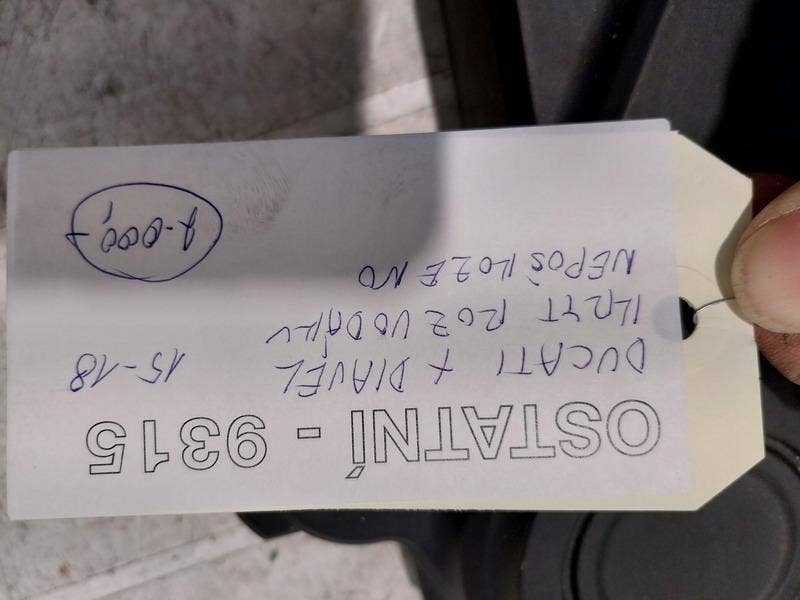 OSTATNÍ - 9315
DUCATI X DIAVEL 15-18
KRYT ROZVODŮ KU
NEPOŠKOZENO
1.000,-